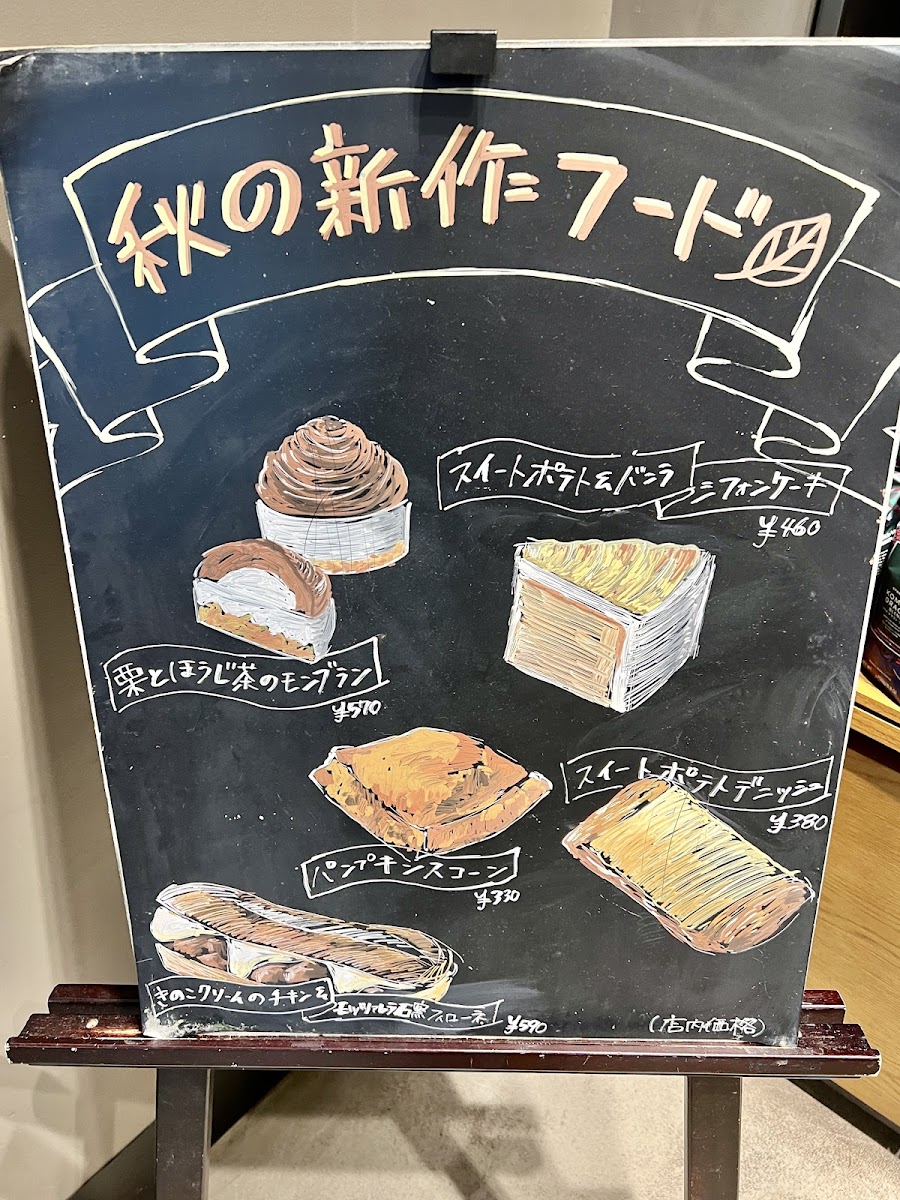 秋の新作フード
スイートポテト&バニラ
シフォンケーキ
¥460
栗とほうじ茶のモンブラン
¥570
スイートポテトデニッシュ
¥380
パンプキンスコーン
¥330
きのこクリームのチキン&
モッツァレラ石窯フィローネ
¥590
(店内価格)